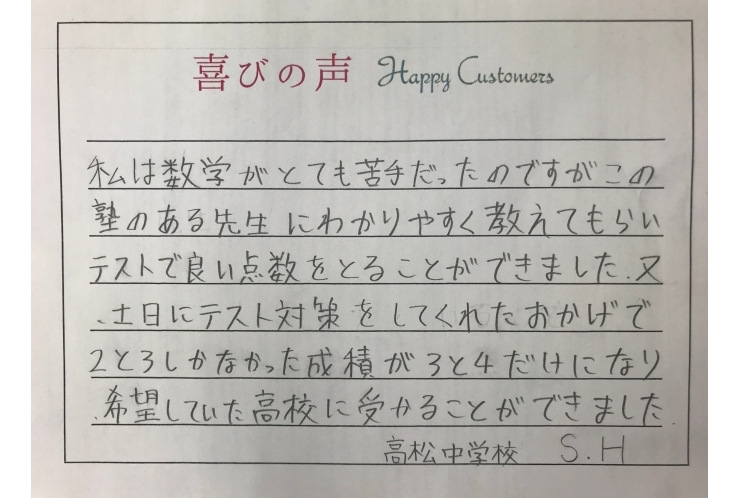 喜びの声 Happy Customers
私は数学がとても苦手だったのですがこの
塾のある先生にわかりやすく教えてもらい
テストで良い点数をとることができました.又
、土日にテスト対策をしてくれたおかげで
2と3しかなかった成積が3と4だけになり
、希望していた高校に受かることができました.
高松中学校 S.H